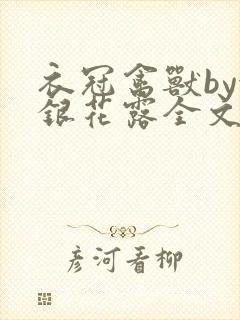 衣冠禽獸by
銀花露全文
彦河看柳